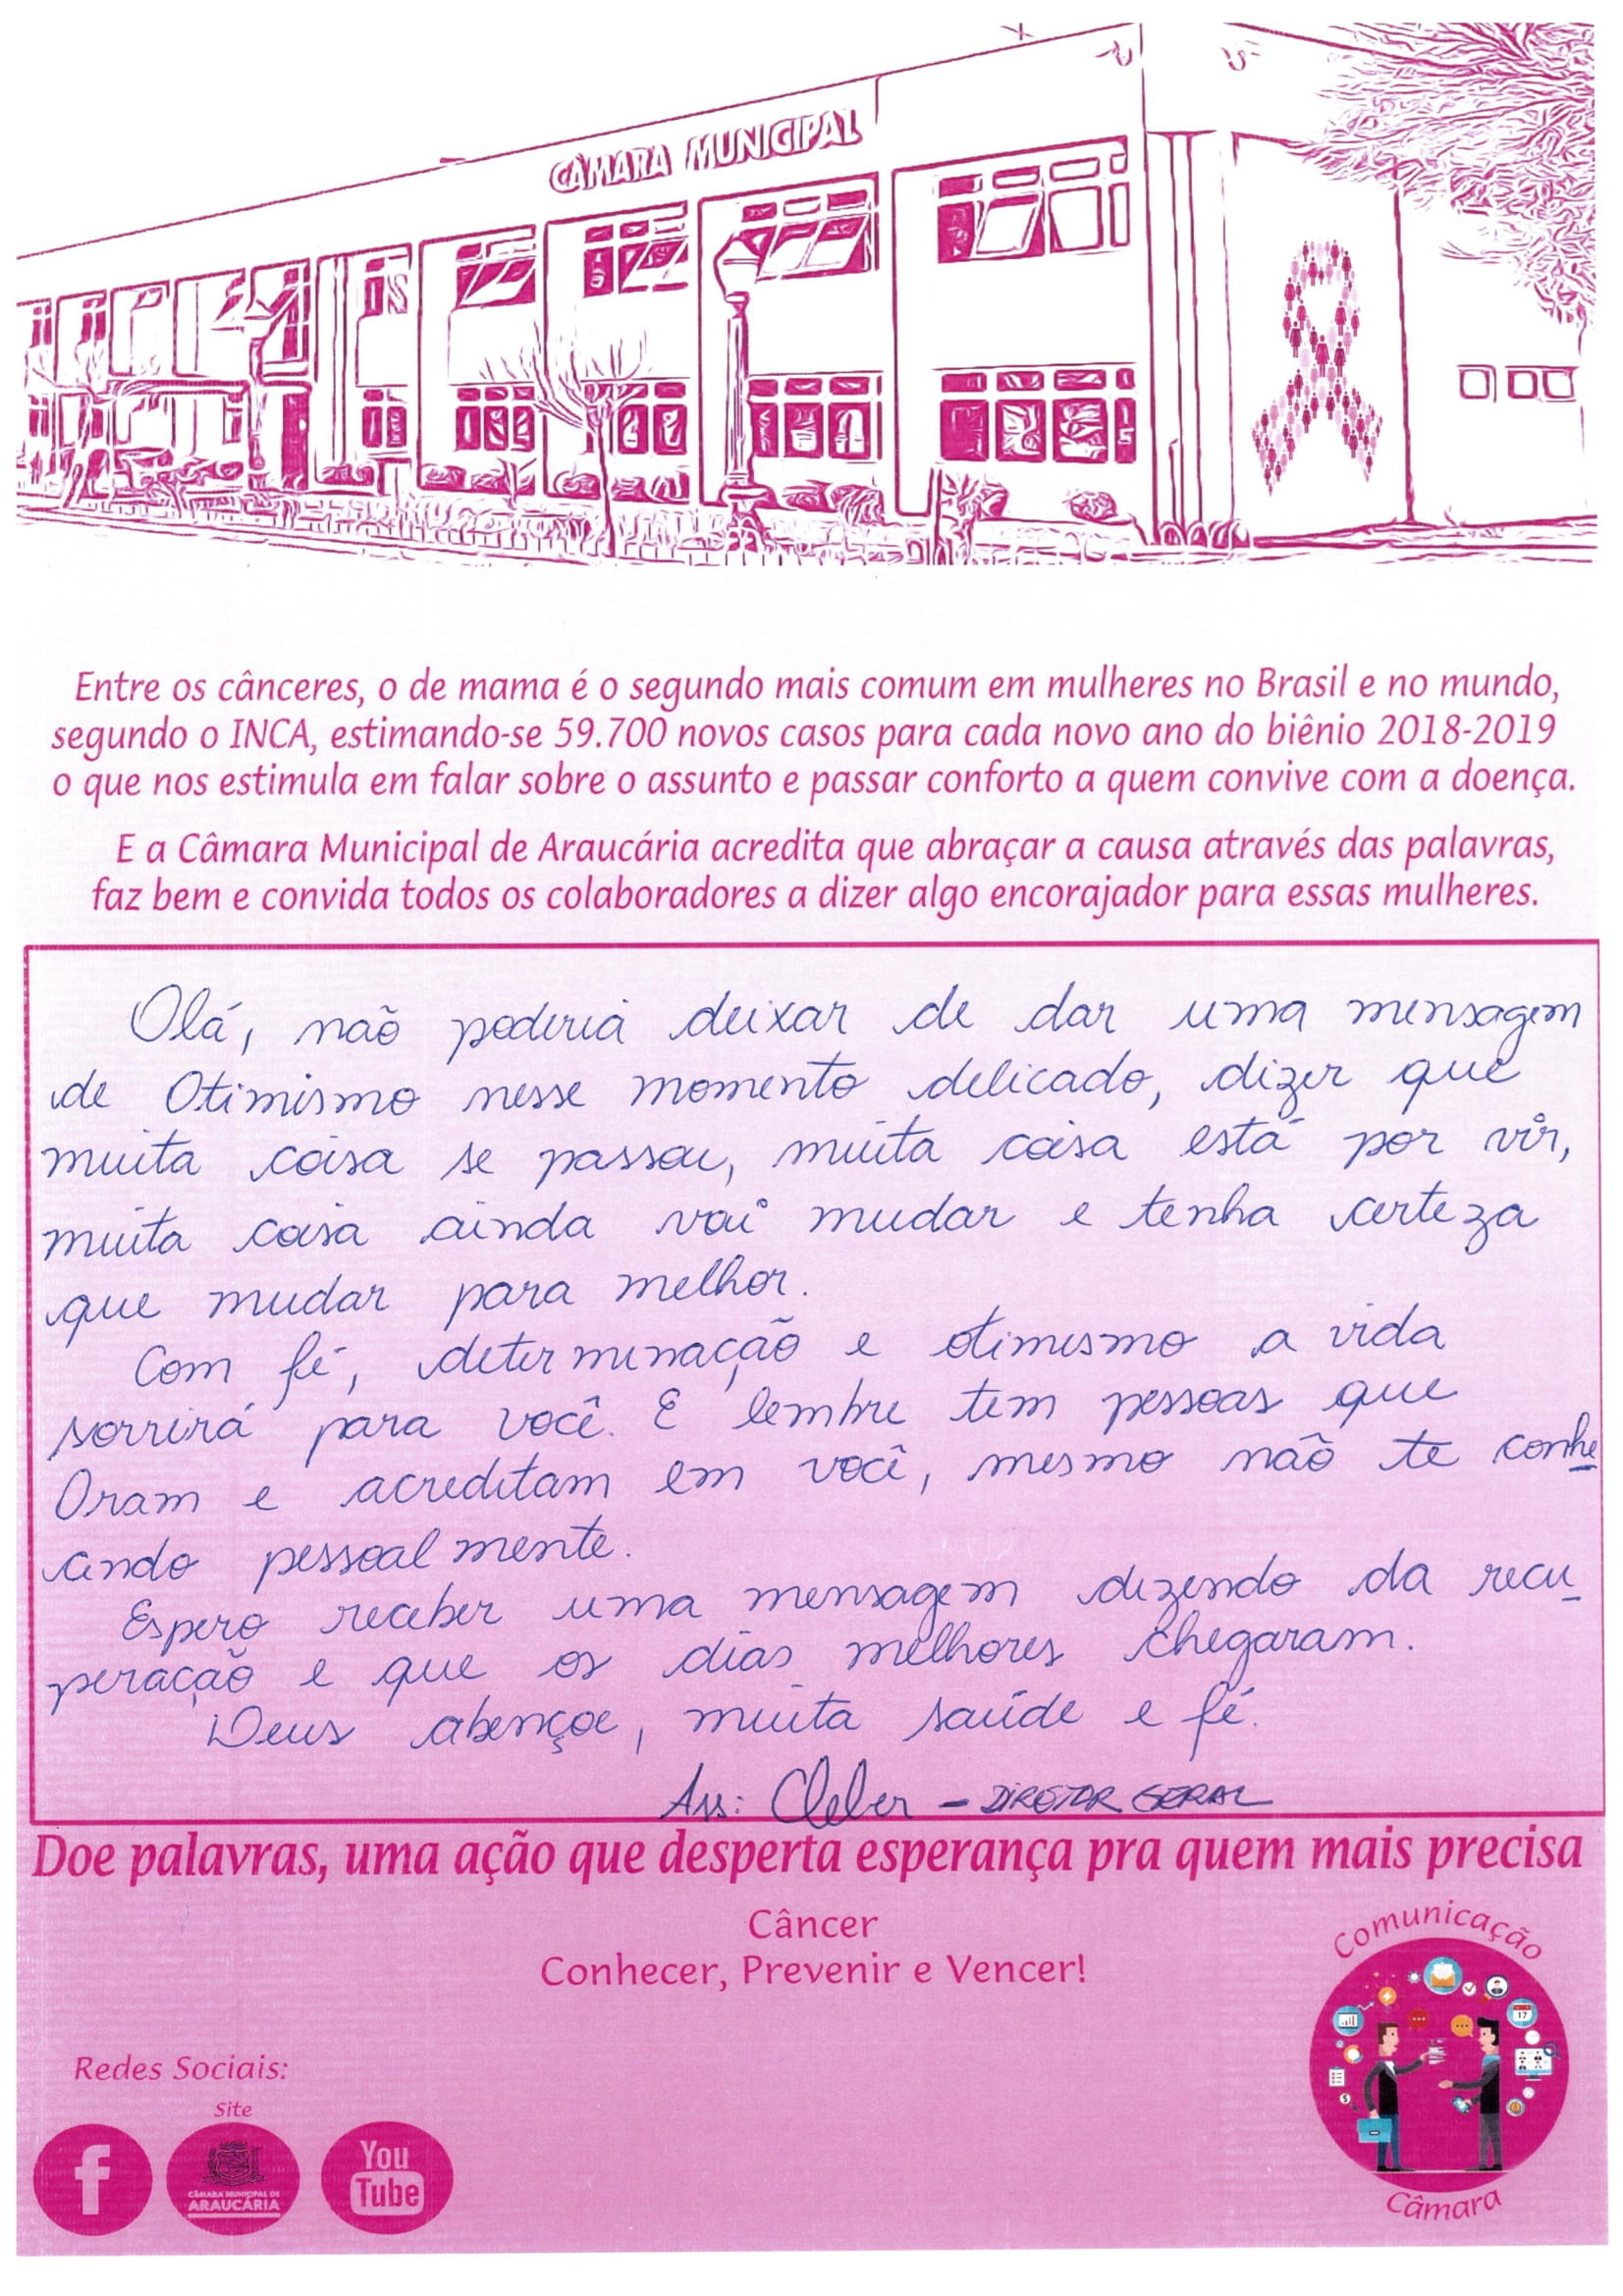 CÂMARA MUNICIPAL
Entre os cânceres, o de mama é o segundo mais comum em mulheres no Brasil e no mundo,
segundo o INCA, estimando-se 59.700 novos casos para cada novo ano do biênio 2018-2019
o que nos estimula em falar sobre o assunto e passar conforto a quem convive com a doença.
E a Câmara Municipal de Araucária acredita que abraçar a causa através das palavras,
faz bem e convida todos os colaboradores a dizer algo encorajador para essas mulheres.
Olá, não poderia deixar de dar uma mensagem
de Otimismo nesse momento delicado, dizer que
muita coisa se passou, muita coisa está por vir,
muita coisa ainda vai mudar e tenha certeza
que mudar para melhor.
Com fé, determinação e otimismo a vida
sorrirá para você. E lembre tem pessoas que
Oram e acreditam em você, mesmo não te conhe
cendo pessoalmente.
Espero receber uma mensagem dizendo da recu_
peração e que os dias melhores chegaram.
Deus abençoe, muita saúde e fé.
Ass: Cleber - DIRETOR GERAL
Doe palavras, uma ação que desperta esperança pra quem mais precisa
Câncer
Conhecer, Prevenir e Vencer!
Comunicação
17
Câmara
Redes Sociais:
Site
f
CÂMARA MUNICIPAL DE
ARAUCÁRIA
You
Tube